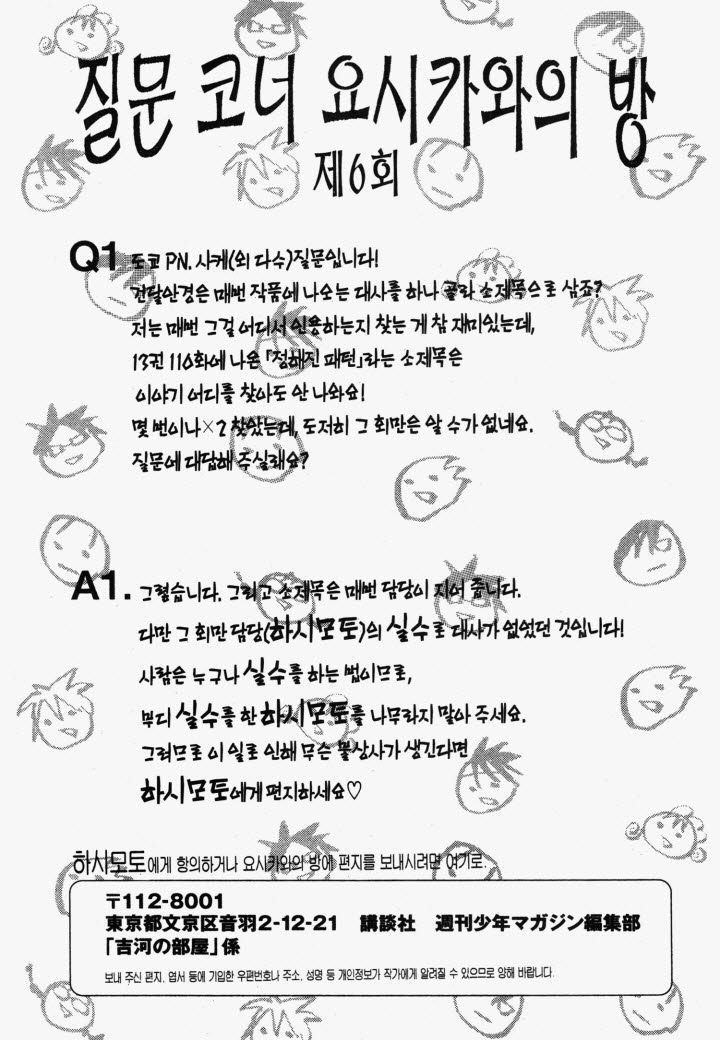 질문 코너 요시카와의 방
제6회
Q1. 도쿄 PN. 사케(외 다수)질문입니다!
건달안경은 매번 작품에 나오는 대사를 하나 골라 소제목으로 삼죠?
저는 매번 그걸 어디서 인용하는지 찾는 게 참 재미있는데,
13권 110화에 나온 「정해진 패턴」라는 소제목은
이야기 어디를 찾아도 안 나와요!
몇 번이나×2 찾았는데, 도저히 그 회만은 알 수가 없네요.
질문에 대답해 주실래요?
A1. 그렇습니다. 그리고 소제목은 매번 담당이 지어 줍니다.
다만 그 회만 담당(하시모토)의 실수로 대사가 없었던 것입니다!
사람은 누구나 실수를 하는 법이므로,
부디 실수를 한 하시모토를 나무라지 말아 주세요.
그러므로 이 일로 인해 무슨 불상사가 생긴다면
하시모토에게 편지하세요♡
하시모토에게 항의하거나 요시카와의 방에 편지를 보내시려면 여기로.
〒112-8001
東京都文京区音羽2-12-21 講談社 週刊少年マガジン編集部
「吉河の部屋」係
보내 주신 편지, 엽서 등에 기입한 우편번호나 주소, 성명 등 개인정보가 작가에게 알려질 수 있으므로 양해 바랍니다.